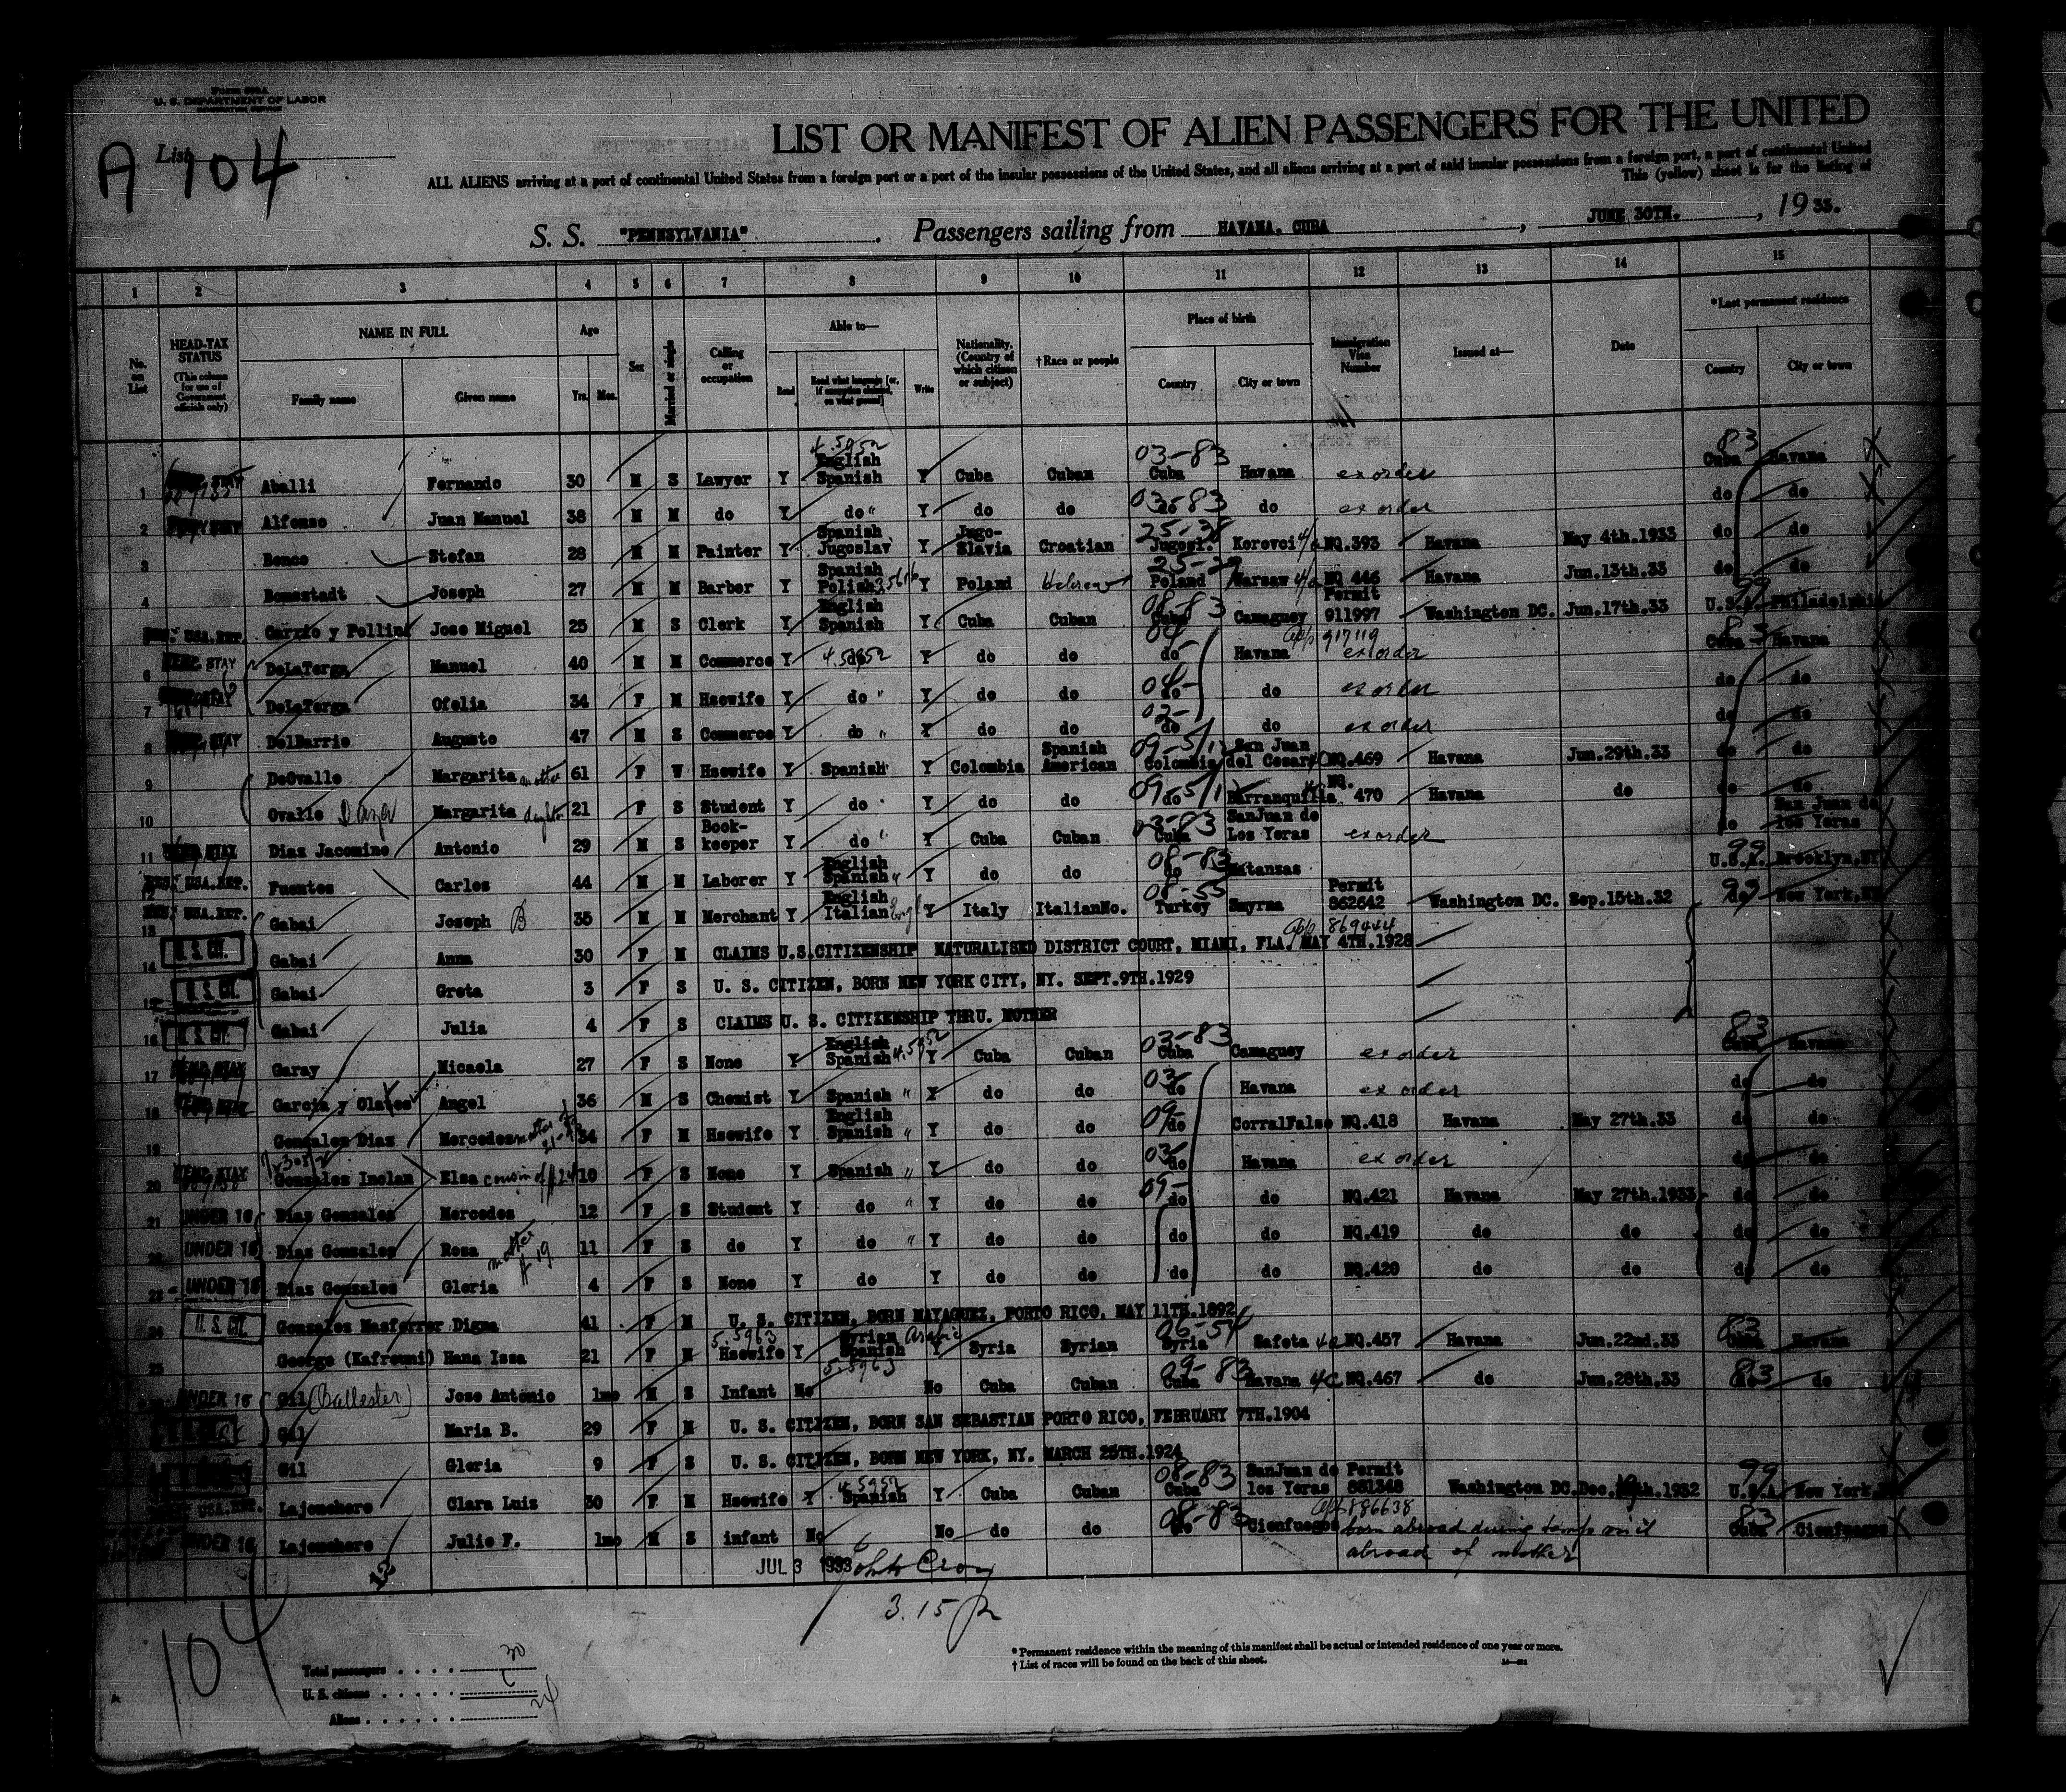 Form 500A
U. S. DEPARTMENT OF LABOR
IMMIGRATION SERVICE
A 104
List
LIST OR MANIFEST OF ALIEN PASSENGERS FOR THE UNITED
ALL ALIENS arriving at a port of continental United States from a foreign port or a port of the insular possessions of the United States, and all aliens arriving at a port of said insular possessions from a foreign port, a port of continental United
This (yellow) sheet is for the listing of
S. S. "PENNSYLVANIA" . Passengers sailing from HAVANA, CUBA , JUNE 30TH. , 19 33.
1 2 3 4 5 6 7 8 9 10 11 12 13 14 15
No. on List
HEAD-TAX STATUS (This column for use of Government officials only)
NAME IN FULL
Family name Given name
Age
Yrs. Mos.
Sex
Married or single
Calling or occupation
Able to—
Read Read what language [or, if exemption claimed, on what ground] Write
Nationality. (Country of which citizen or subject)
†Race or people
Place of birth
Country City or town
Immigration Visa Number
Issued at—
Date
*Last permanent residence
Country City or town
1 Aballi Fernando 30 M S Lawyer Y English Spanish Y Cuba Cuban 03-83 Cuba Havana ex order 83 Cuba Havana
2 Alfonso Juan Manuel 38 M M do Y do " Y do do 03-83 do do ex order do do
3 Bence Stefan 28 M M Painter Y Spanish Jugoslav Y Jugo-Slavia Croatian Jugosl. Korovci NQ.393 Havana May 4th.1933 do do
4 Bomstadt Joseph 27 M M Barber Y Spanish Polish Y Poland Hebrew Poland Warsaw NQ 446 Havana Jun.13th.33 do do
USA.RET. Carrio y Pollini Jose Miguel 25 M S Clerk Y English Spanish Y Cuba Cuban 08-83 Cuba Camaguey Permit 911997 Washington DC. Jun.17th.33 99 U.S.A. Philadelphia
app 917119
6 TEMP. STAY DeLaTorga Manuel 40 M M Commerce Y 4.5952 do Y do do 04- do Havana ex order 83 Cuba Havana
7 DeLaTorga Ofelia 34 F M Hsewife Y do " Y do do 04- do do ex order do do
8 TEMP. STAY DelBarrio Augusto 47 M S Commerce Y do " Y do do 03- do do ex order do do
9 DeOvalle Margarita mother 61 F W Hsewife Y Spanish Y Colombia Spanish American Colombia San Juan del Cesar NQ.469 Havana Jun.29th.33 do do
10 Ovalle Daza Margarita daughter 21 F S Student Y do Y do do do Barranquilla NQ. 470 Havana do do do
11 TEMP. STAY Diaz Jacomino Antonio 29 M S Book-keeper Y do " Y Cuba Cuban 03-83 Cuba SanJuan de Los Yeras ex order do San Juan de los Yeras
USA.RET. Fuentes Carlos 44 M M Laborer Y English Spanish " Y do do 08-83 do Matansas 99 U.S.A. Brooklyn,NY
13 USA.RET. Gabai Joseph B 35 M M Merchant Y English Italian Y Italy ItalianNo. 08-55 Turkey Smyrna Permit 862642 Washington DC. Sep.15th.32 99 do New York,NY
app 869444
14 U. S. CIT. Gabai Anna 30 F M CLAIMS U.S.CITIZENSHIP NATURALISED DISTRICT COURT, MIAMI, FLA. MAY 4TH.1928
15 U. S. CIT. Gabai Greta 3 F S U. S. CITIZEN, BORN NEW YORK CITY, NY. SEPT.9TH.1929
16 U. S. CIT. Gabai Julia 4 F S CLAIMS U. S. CITIZENSHIP THRU. MOTHER
17 TEMP. STAY Garay Micaela 27 F S None Y English Spanish 4.5952 Y Cuba Cuban 03-83 Cuba Camaguey ex order 83 Cuba Havana
18 Garcia y Olates Angel 36 M S Chemist Y Spanish " Y do do 03- do Havana ex order do do
19 Gonzales Diaz Mercedes mother 34 F M Hsewife Y English Spanish " Y do do 09- do CorralFalso NQ.418 Havana May 27th.33 do do
20 TEMP. STAY Gonzales Inclan Elsa cousin of # 24 10 F S None Y Spanish " Y do do 03- do Havana ex order do do
21 UNDER 16 Diaz Gonzales Mercedes 12 F S Student Y do " Y do do 09- do do NQ.421 Havana May 27th.1933 do do
UNDER 16 Diaz Gonzales Rosa mother # 19 11 F S do Y do " Y do do do do NQ.419 do do do do
23 UNDER 16 Diaz Gonzales Gloria 4 F S None Y do Y do do do do NQ.420 do do do do
24 U. S. CIT. Gonzales Masferrer Digna 41 F M U. S. CITIZEN, BORN MAYAGUEZ, PORTO RICO, MAY 11TH.1892
25 George (Kafrouni) Hana Issa 21 F M 5.5963 Hsewife Y Syrian Arabic Spanish Y Syria Syrian Syria Safeta NQ.457 Havana Jun.22nd.33 83 Cuba Havana
UNDER 16 Gil (Ballester) Jose Antonio 1mo M S Infant No 5.5963 No Cuba Cuban 09-83 Cuba Havana NQ.467 do Jun.28th.33 83 do do
Gil Maria B. 29 F M U. S. CITIZEN, BORN SAN SEBASTIAN PORTO RICO, FEBRUARY 7TH.1904
Gil Gloria 9 F S U. S. CITIZEN, BORN NEW YORK, NY. MARCH 25TH.1924
USA.RET. Lajonchere Clara Luis 30 F M Hsewife Y 4.5952 Spanish Y Cuba Cuban 08-83 Cuba SanJuan de los Yeras Permit 881348 Washington DC. 1932 99 U.S.A. New York,
app 886638
UNDER 16 Lajonchere Julio F. 1mo M S infant No No do do 08-83 do Cienfuegos born abroad during temp visit 83 Cuba Cienfuegos
abroad of mother
JUL 3 1933
3.15 p
104
Total passengers . . . . 30
U. S. citizens . . . . .
Aliens . . . . . . 24
* Permanent residence within the meaning of this manifest shall be actual or intended residence of one year or more.
† List of races will be found on the back of this sheet.